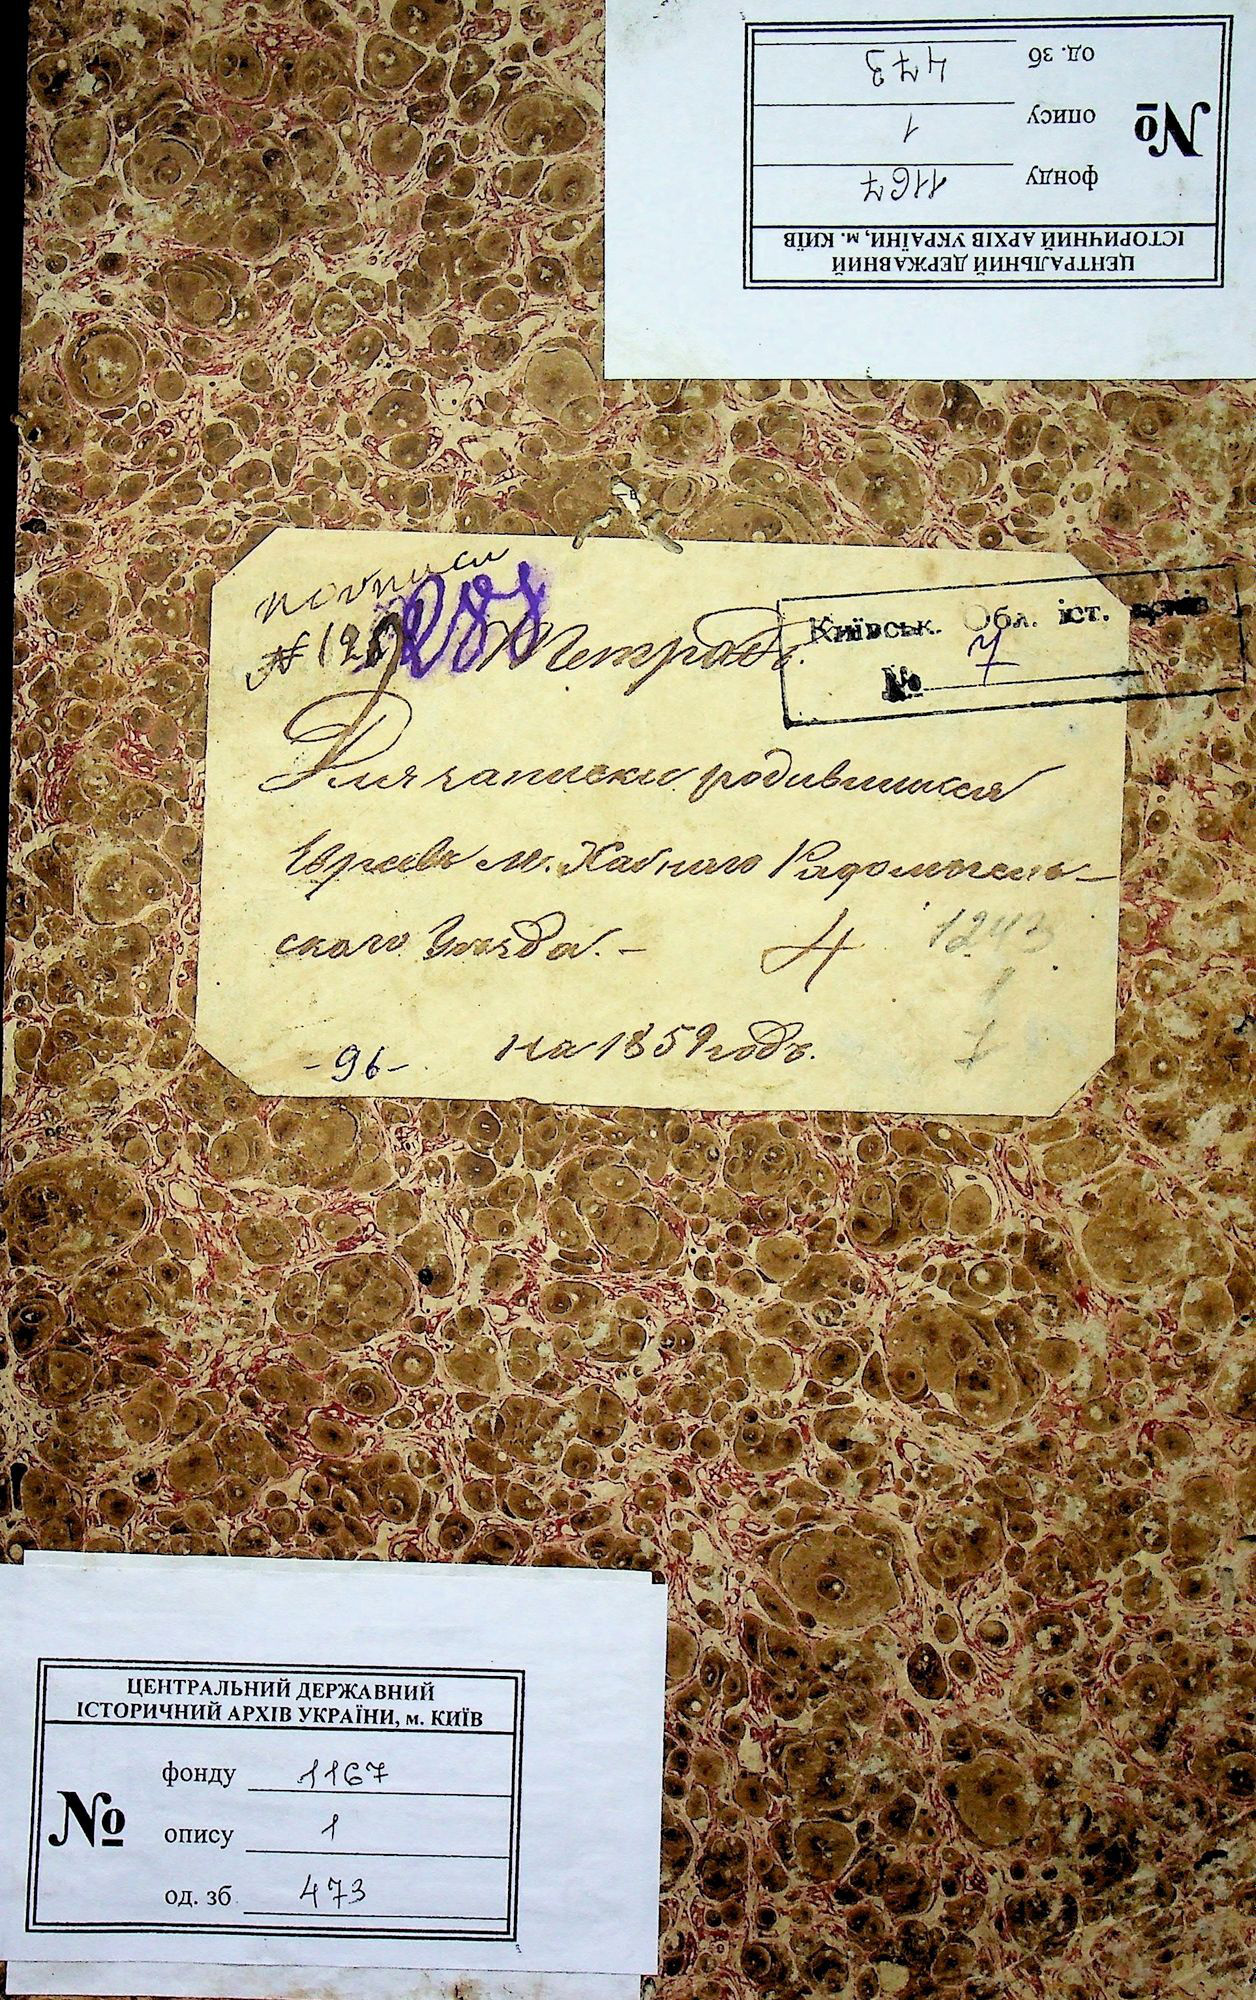 ЦЕНТРАЛЬНИЙ ДЕРЖАВНИЙ
ІСТОРИЧНИЙ АРХІВ УКРАЇНИ, м. КИЇВ
№
фонду 1167
опису 1
од. зб 473
по описи
№ 120
288
Тетрадь.
Київськ. Обл. іст. архів
№ 7
Для записки родившихся
Евреевъ м. Хабного Радомысль-
скаго Уѣзда. –
4
1243
1
7
на 1859 годъ.
- 96 -
ЦЕНТРАЛЬНИЙ ДЕРЖАВНИЙ
ІСТОРИЧНИЙ АРХІВ УКРАЇНИ, м. КИЇВ
№
фонду 1167
опису 1
од. зб 473